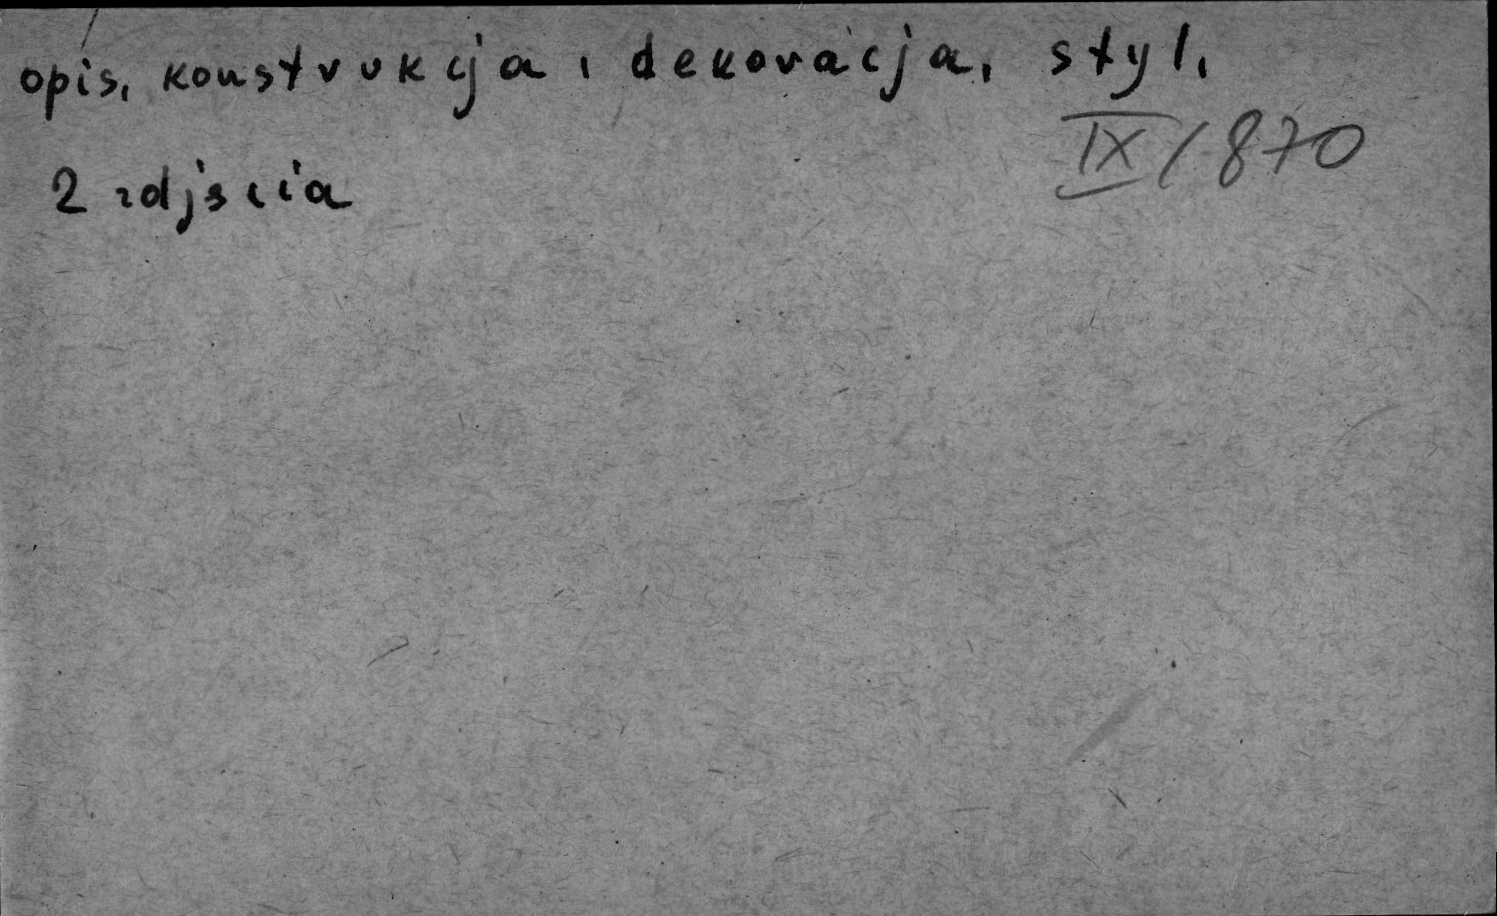 opis, konstrukcja i dekoracja, styl,
IX/870
2 zdjścia